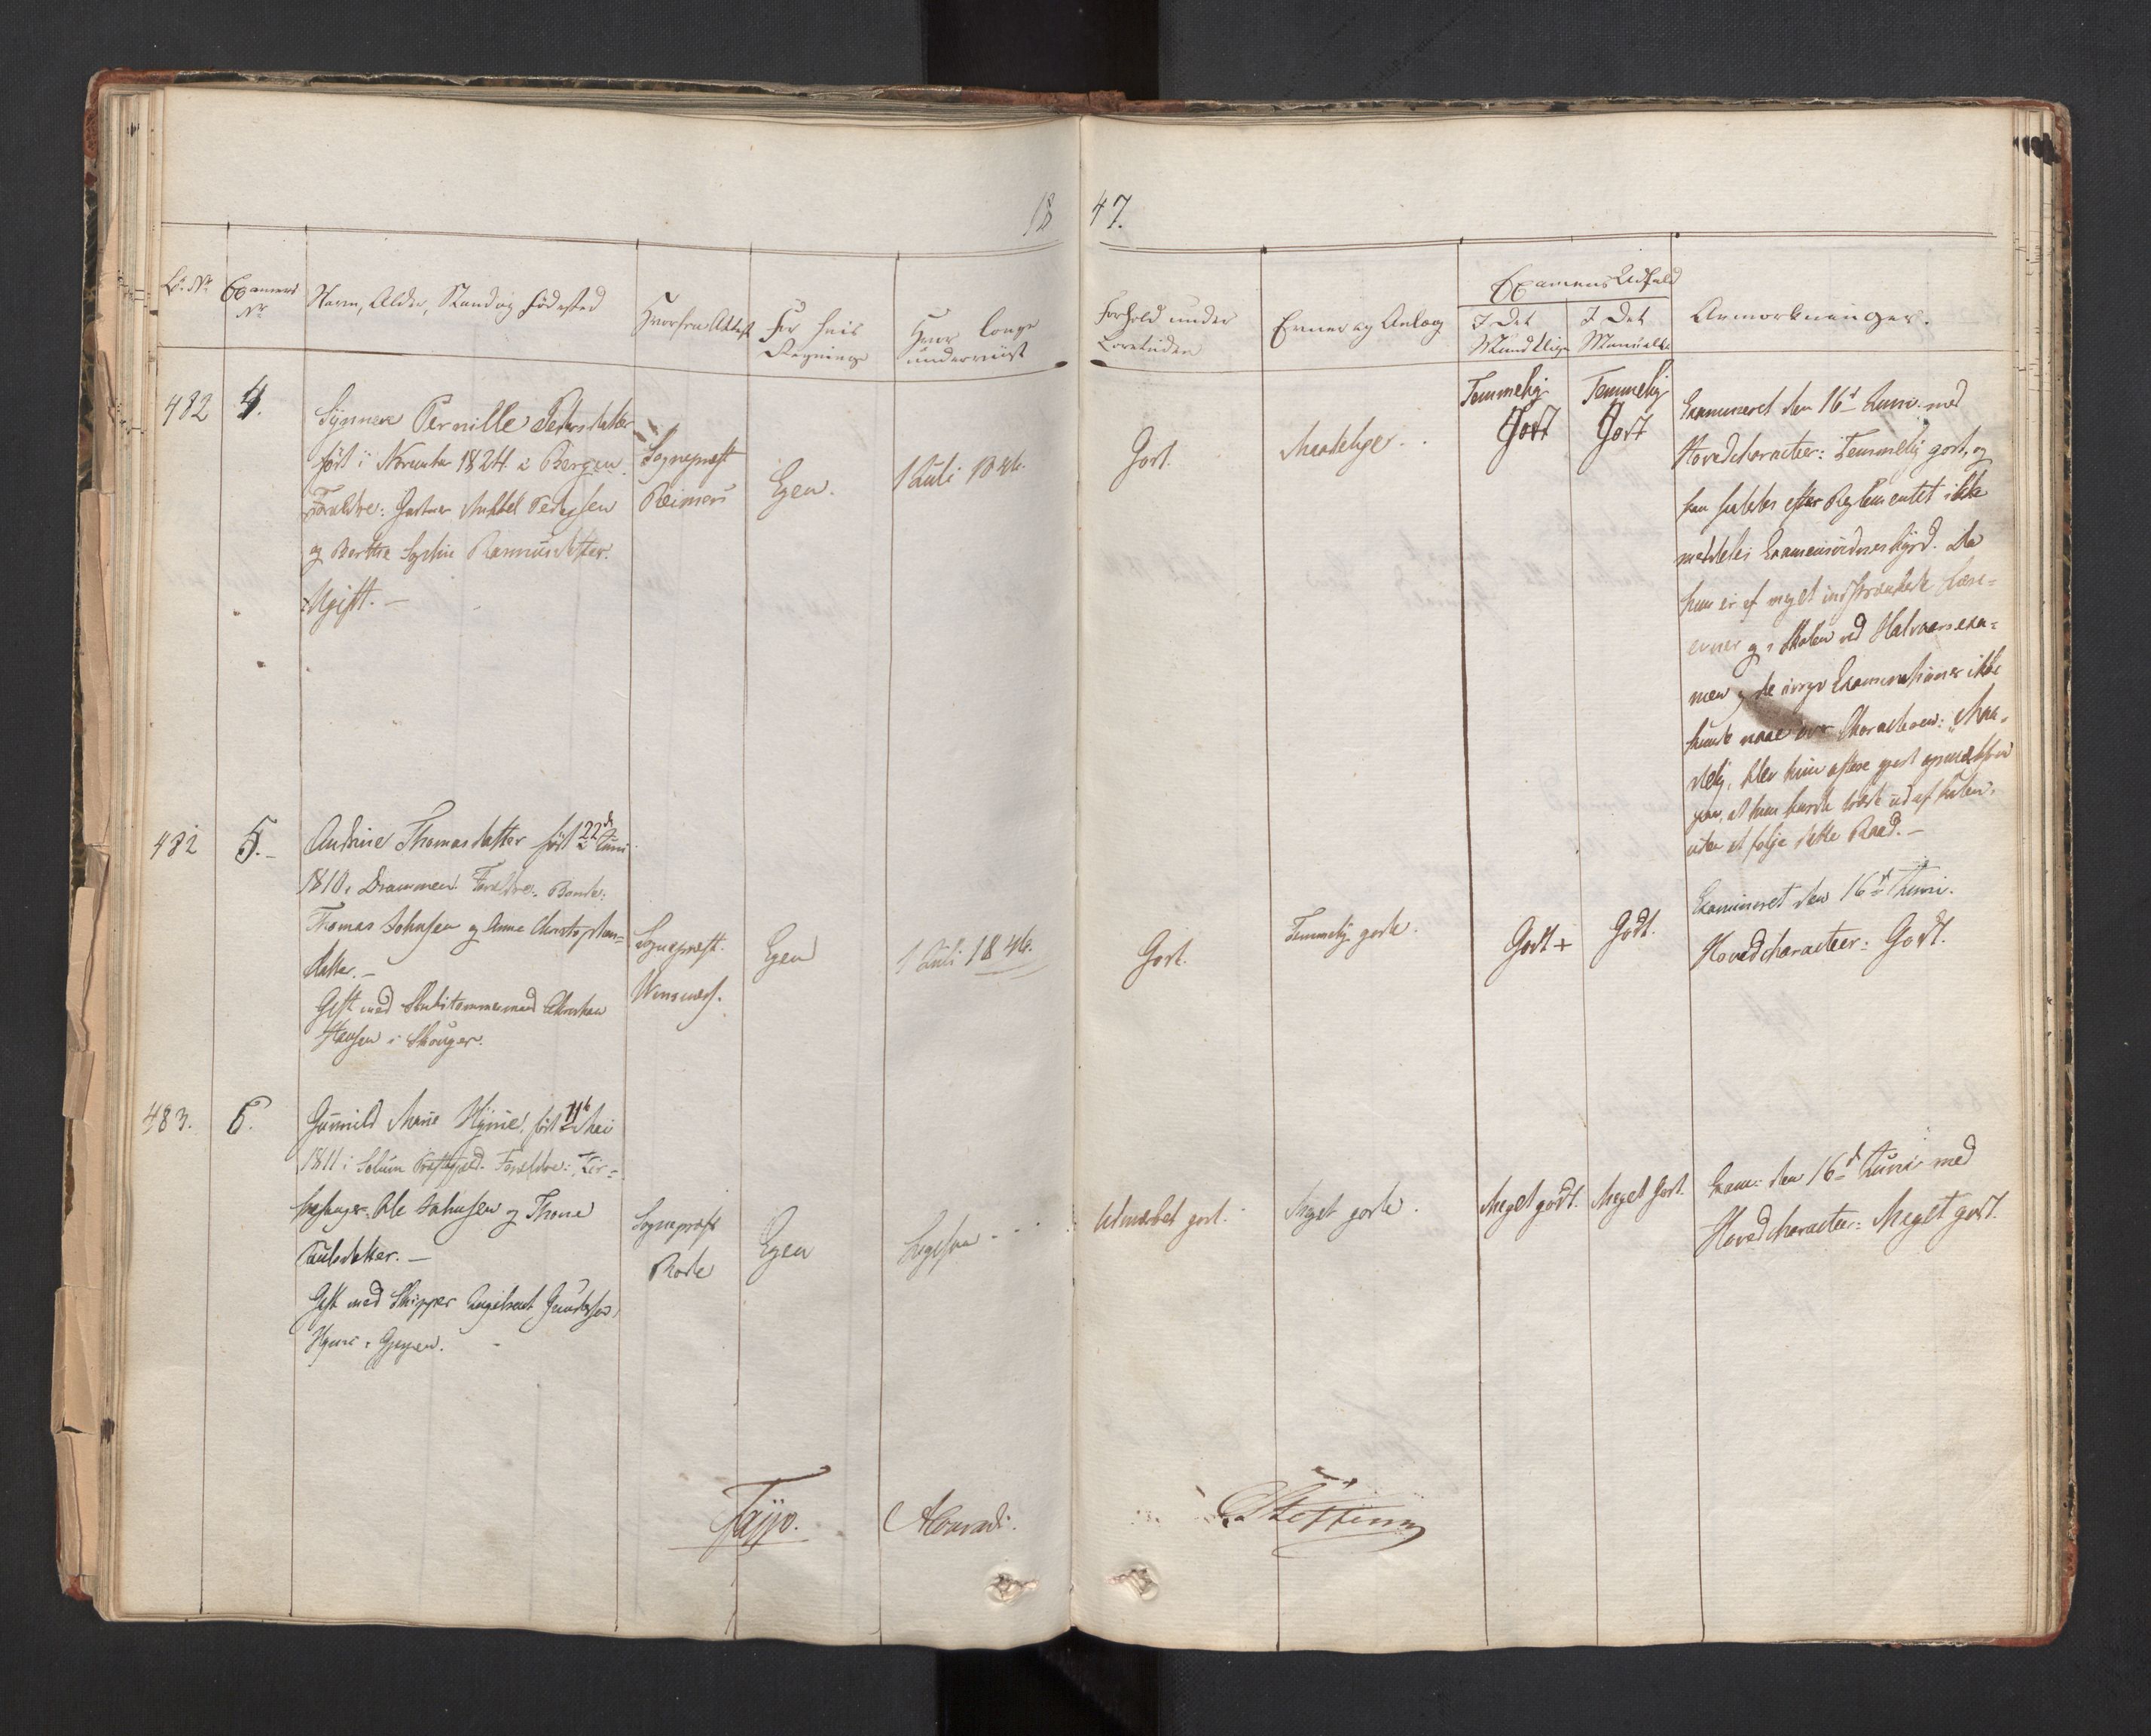 18 47.
Lb. Nr
Examens
Nr
Navn, Alder, Stand og Födested
Hvorfra Attest
For hvis
Regning
Hvor længe
underviist
Forhold under
Læretiden
Evner og Anlæg
Examens Udfald
I Det
Mundtlige
I Det
Manuelle
Anmærkninger.
482
4.
Pernille Pedersdatter
født i November 1824 i Bergen.
Forældre: Gartner Mikkel Pedersen
og Berthe Sophie Rasmusdatter.
Ugift. —
Sognepræst
Reimers
Egen.
1 Juli 1846.
Godt.
Maadelige.
Temmelig
Godt
Temmelig
Godt
Examineret den 16d Juni med
Hovedcharacteer: Temmelig godt, og
kan saaledes efter Reglementet ikke
meddeles Examensvidnesbyrd. Da
hun er af meget indskrænkede Læse=
evner og i Skolen ved Halvaarsexa=
men og de øvrige Examinationer ikke
kunde naae over Characteren: "Maa-
delig,
uden at følge dette Raad. —
482
5. –
Andrine Thomasdatter født 22d Juni
1810 i Drammen. Forældre: Bonde
Thomas Johnsen og Anne Christophers=
datter. —
Gift med Skibstømmermand
Hansen i Skouger.
Sognepræst
Egen
1 Juli 1846.
Godt.
Temmelig gode.
Godt +
Godt.
Examineret den 16d Juni.
Hovedcharacteer: Godt.
483.
6.
Gunnild Marie født 11te Mai
1811 i Solum Præstegjeld. Forældre: Kir=
kesanger Ole Johnsen og Thone
datter. —
Gift med Skipper Engebret Gundersen
Sognepræst
Rode
Egen
Ligesaa
Udmærket godt.
Meget gode.
Meget godt.
Meget Godt.
Exam: den 16d Juni med
Hovedcharacteer: Meget godt.
Faye.
AConradi.